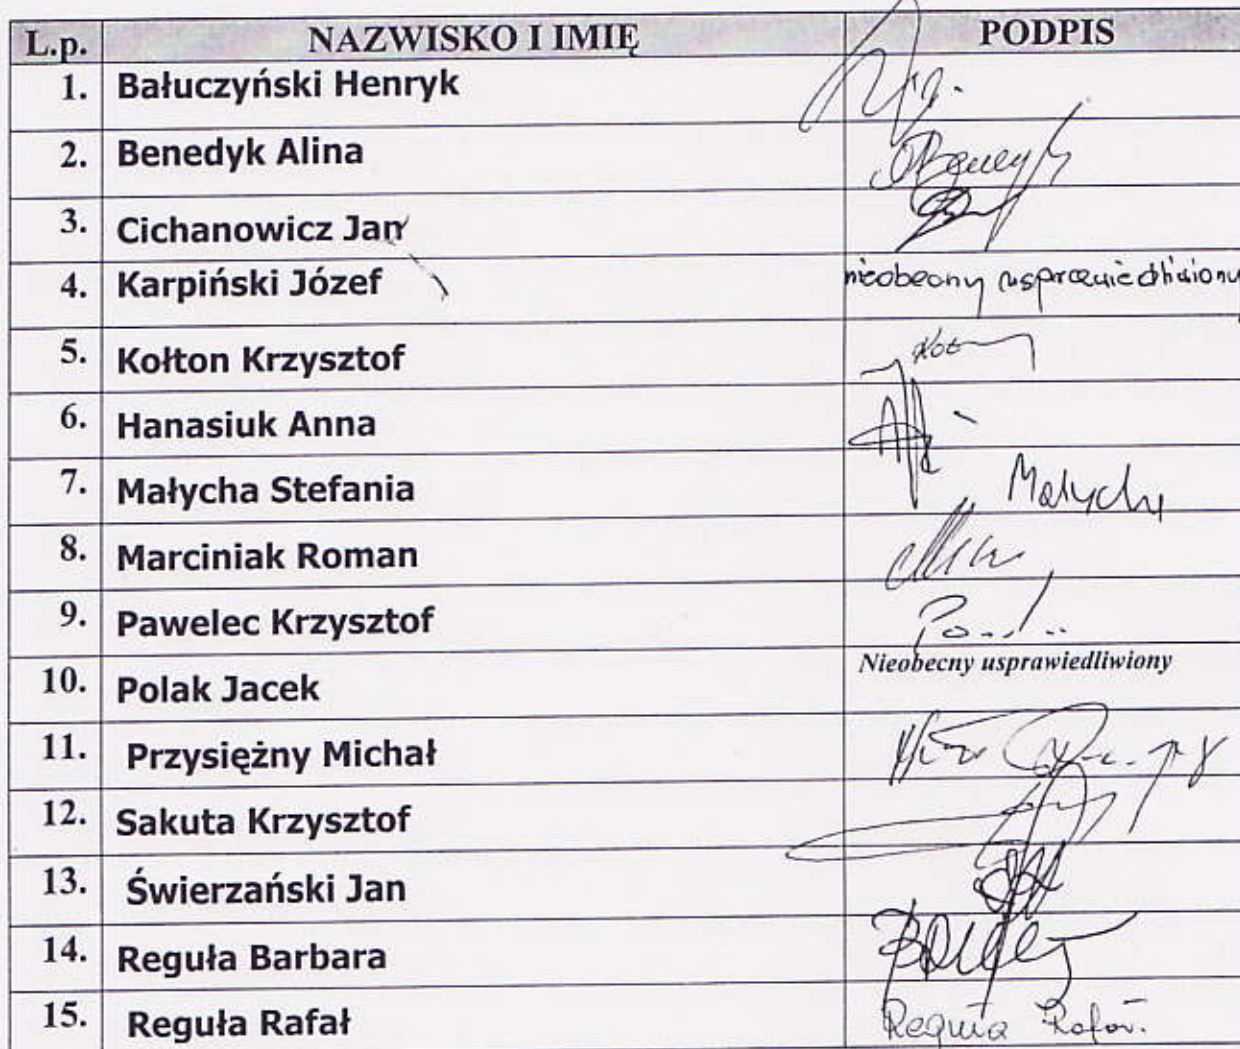 L.p. NAZWISKO I IMIĘ PODPIS
1. Bałuczyński Henryk
2. Benedyk Alina
3. Cichanowicz Jan
4. Karpiński Józef nieobecny usprawiedliwiony
5. Kołton Krzysztof
6. Hanasiuk Anna
7. Małycha Stefania Małycha
8. Marciniak Roman
9. Pawelec Krzysztof
10. Polak Jacek Nieobecny usprawiedliwiony
11. Przysiężny Michał
12. Sakuta Krzysztof
13. Świerzański Jan
14. Reguła Barbara
15. Reguła Rafał Reguła Rafał